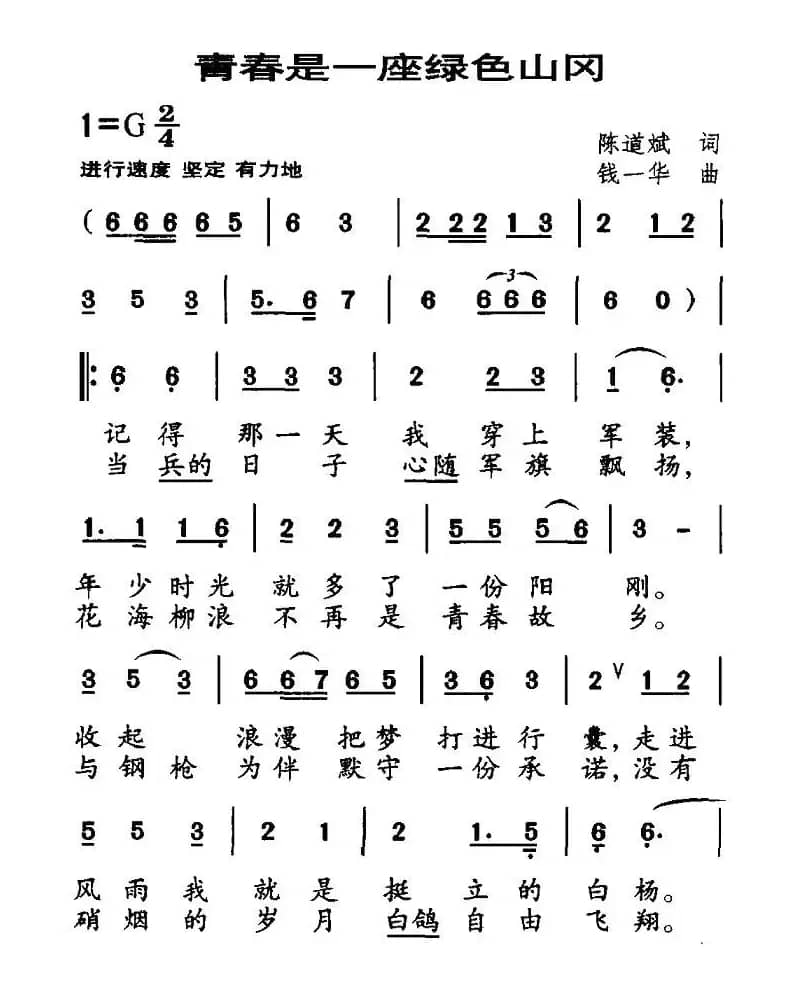 青春是一座绿色山冈
1=G 2/4
陈道斌 词
进行速度 坚定 有力地
钱一华 曲
( 6 6 6 6 5 | 6 3 | 2 2 2 1 3 | 2 1 2 |
3 5 3 | 5. 6 7 | 6 6 6 6 | 6 0 ) |
3
‖: 6 6 | 3 3 3 | 2 2 3 | 1 6. |
记得 那一天 我 穿上 军装,
当兵的日 子 心随军旗飘扬,
1. 1 1 6 | 2 2 3 | 5 5 5 6 | 3 - |
年少时光就多了一份阳 刚。
花海柳浪不再是青春故 乡。
3 5 3 | 6 6 7 6 5 | 3 6 3 | 2 ∨ 1 2 |
收起 浪漫把梦打进行 囊,走进
与钢枪为伴默守一份承 诺,没有
5 5 3 | 2 1 | 2 1. 5 | 6 6. |
风雨我就是挺立的白杨。
硝烟的岁月白鸽自由飞翔。